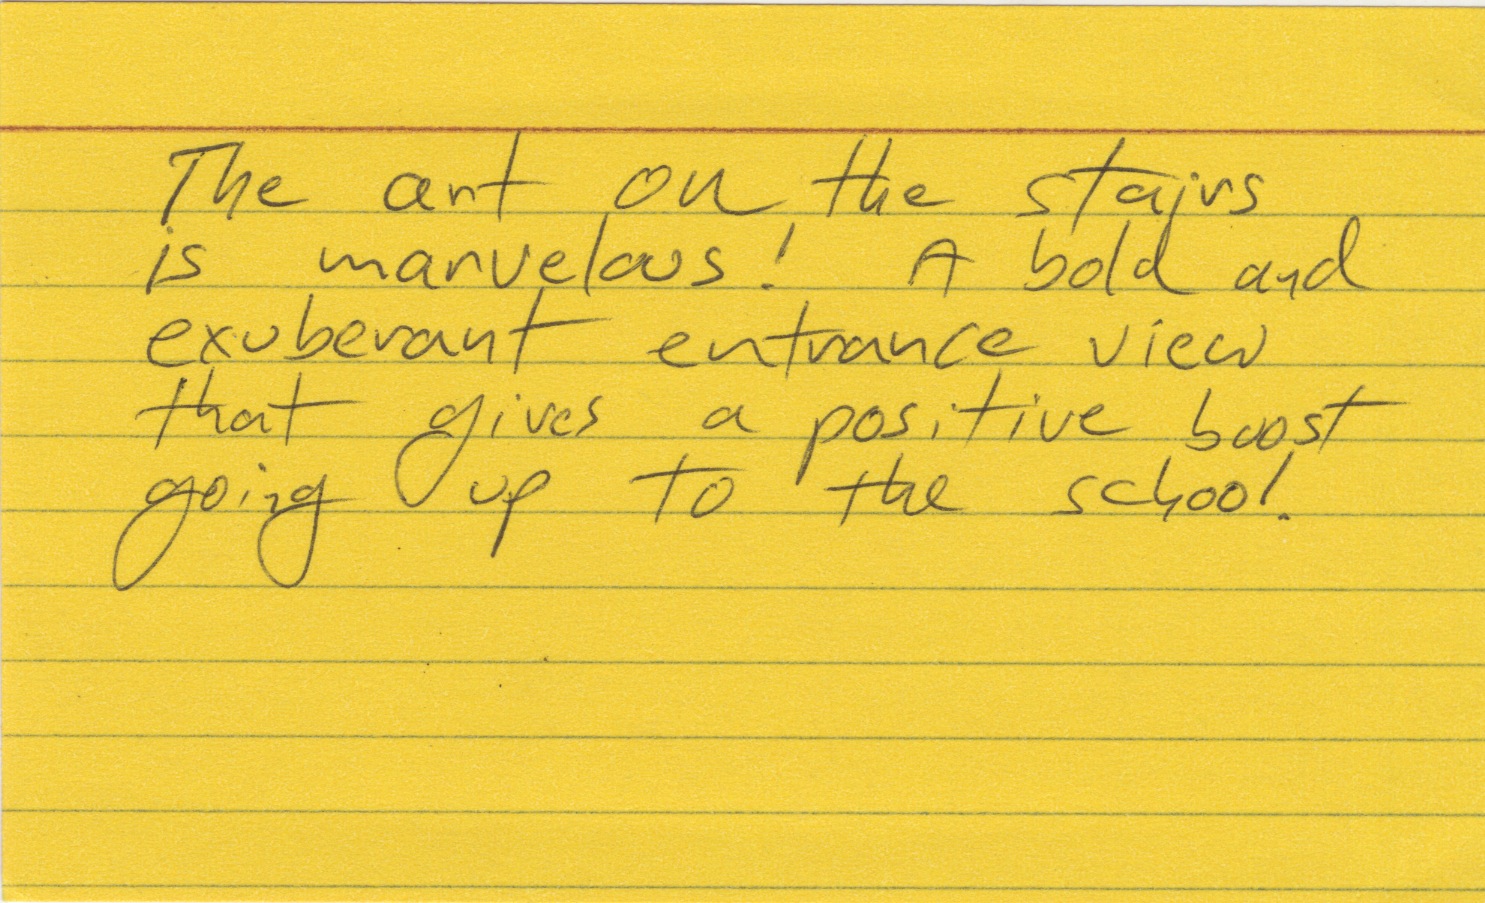 The art on the stairs
is marvelous! A bold and
exuberant entrance view
that gives a positive boost
going up to the school.